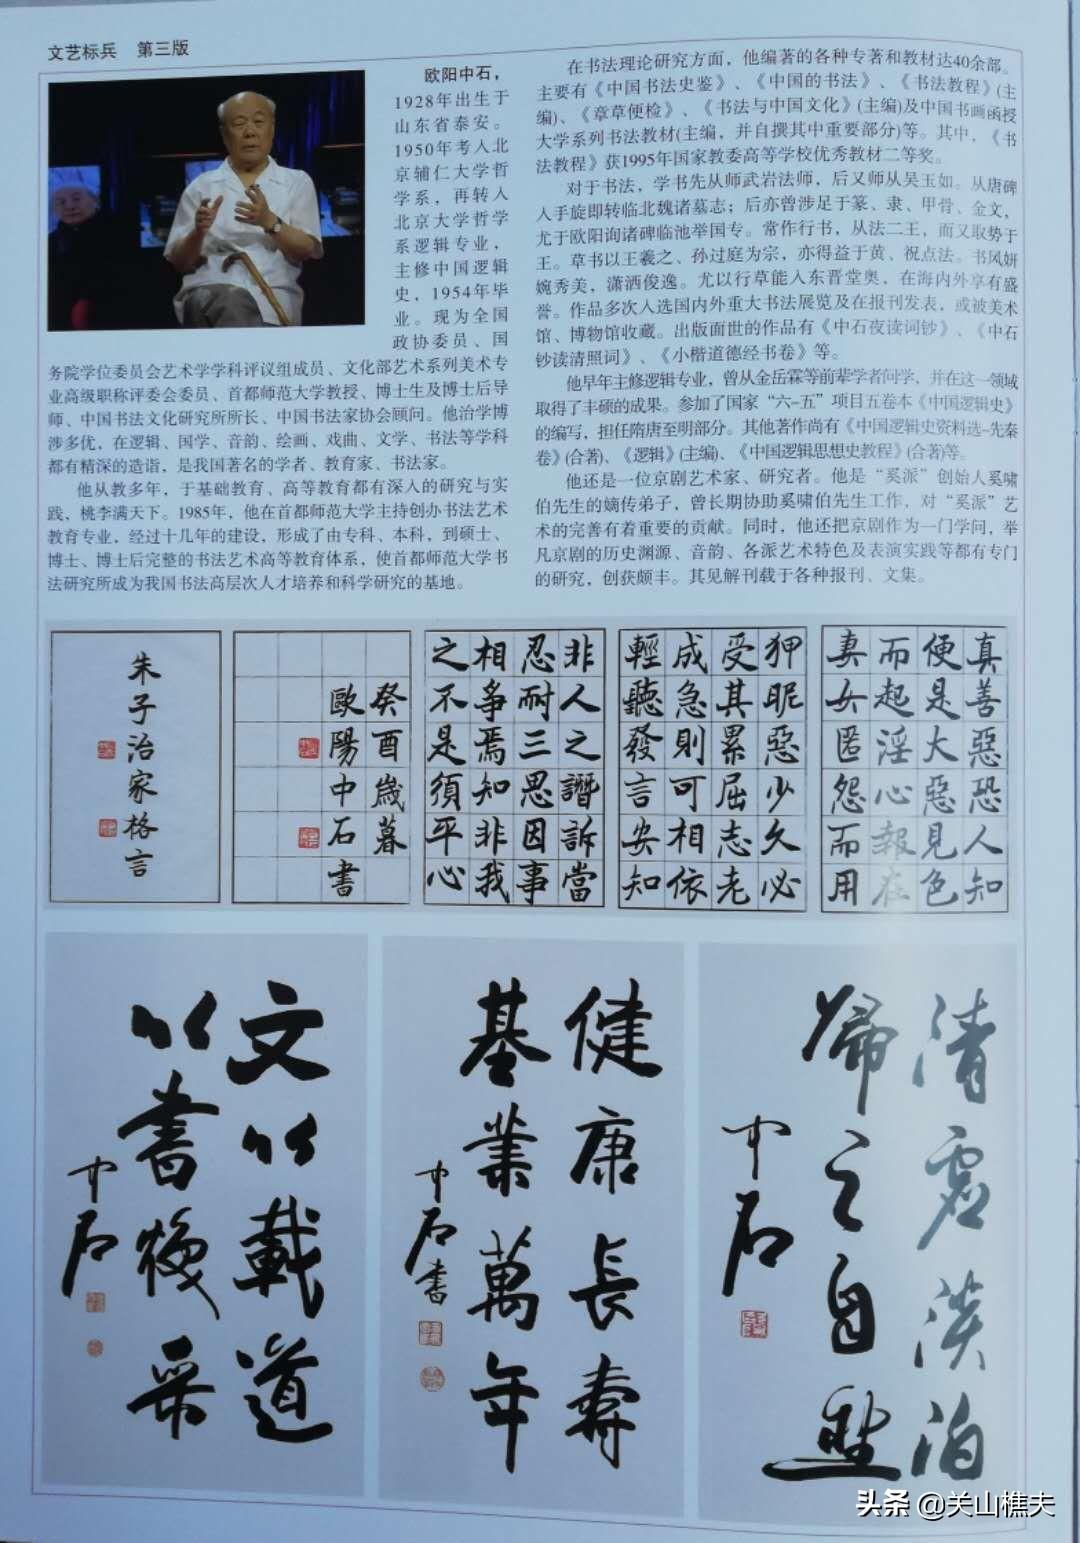 文艺标兵 第三版
欧阳中石，
1928年出生于
山东省泰安。
1950年考入北
京辅仁大学哲
学系，再转入
北京大学哲学
系逻辑专业，
主修中国逻辑
史，1954年毕
业。现为全国
政协委员、国
务院学位委员会艺术学学科评议组成员、文化部艺术系列美术专
业高级职称评委会委员、首都师范大学教授、博士生及博士后导
师、中国书法文化研究所所长、中国书法家协会顾问。他治学博
涉多优，在逻辑、国学、音韵、绘画、戏曲、文学、书法等学科
都有精深的造诣，是我国著名的学者、教育家、书法家。
他从教多年，于基础教育、高等教育都有深入的研究与实
践，桃李满天下。1985年，他在首都师范大学主持创办书法艺术
教育专业，经过十几年的建设，形成了由专科、本科，到硕士、
博士、博士后完整的书法艺术高等教育体系，使首都师范大学书
法研究所成为我国书法高层次人才培养和科学研究的基地。
在书法理论研究方面，他编著的各种专著和教材达40余部。
主要有《中国书法史鉴》、《中国的书法》、《书法教程》(主
编)、《章草便检》、《书法与中国文化》(主编)及中国书画函授
大学系列书法教材(主编，并自撰其中重要部分)等。其中，《书
法教程》获1995年国家教委高等学校优秀教材二等奖。
对于书法，学书先从师武岩法师，后又师从吴玉如。从唐碑
入手旋即转临北魏诸墓志；后亦曾涉足于篆、隶、甲骨、金文，
尤于欧阳询诸碑临池举国专。常作行书，从法二王，而又取势于
王。草书以王羲之、孙过庭为宗，亦得益于黄、祝点法。书风妍
婉秀美，潇洒俊逸。尤以行草能入东晋堂奥，在海内外享有盛
誉。作品多次入选国内外重大书法展览及在报刊发表，或被美术
馆、博物馆收藏。出版面世的作品有《中石夜读词钞》、《中石
钞读清照词》、《小楷道德经书卷》等。
他早年主修逻辑专业，曾从金岳霖等前辈学者问学，并在这一领域
取得了丰硕的成果。参加了国家“六-五”项目五卷本《中国逻辑史》
的编写，担任隋唐至明部分。其他著作尚有《中国逻辑史资料选-先秦
卷》(合著)、《逻辑》(主编)、《中国逻辑思想史教程》(合著)等。
他还是一位京剧艺术家、研究者。他是“奚派”创始人奚啸
伯先生的嫡传弟子，曾长期协助奚啸伯先生工作，对“奚派”艺
术的完善有着重要的贡献。同时，他还把京剧作为一门学问，举
凡京剧的历史渊源、音韵、各派艺术特色及表演实践等都有专门
的研究，创获颇丰。其见解刊载于各种报刊、文集。
真善惡恐人知
便是大惡見色
而起淫心報在
妻女匿怨而用
狎昵惡少久必
受其累屈志老
成急則可相依
輕聽發言安知
非人之譖訴當
忍耐三思因事
相爭焉知非我
之不是須平心
癸酉歲暮
歐陽中石書
朱子治家格言
清虛淡泊
歸之自然
中石
健康長壽
基業萬年
中石書
文以載道
以書煥采
中石
头条 @关山樵夫